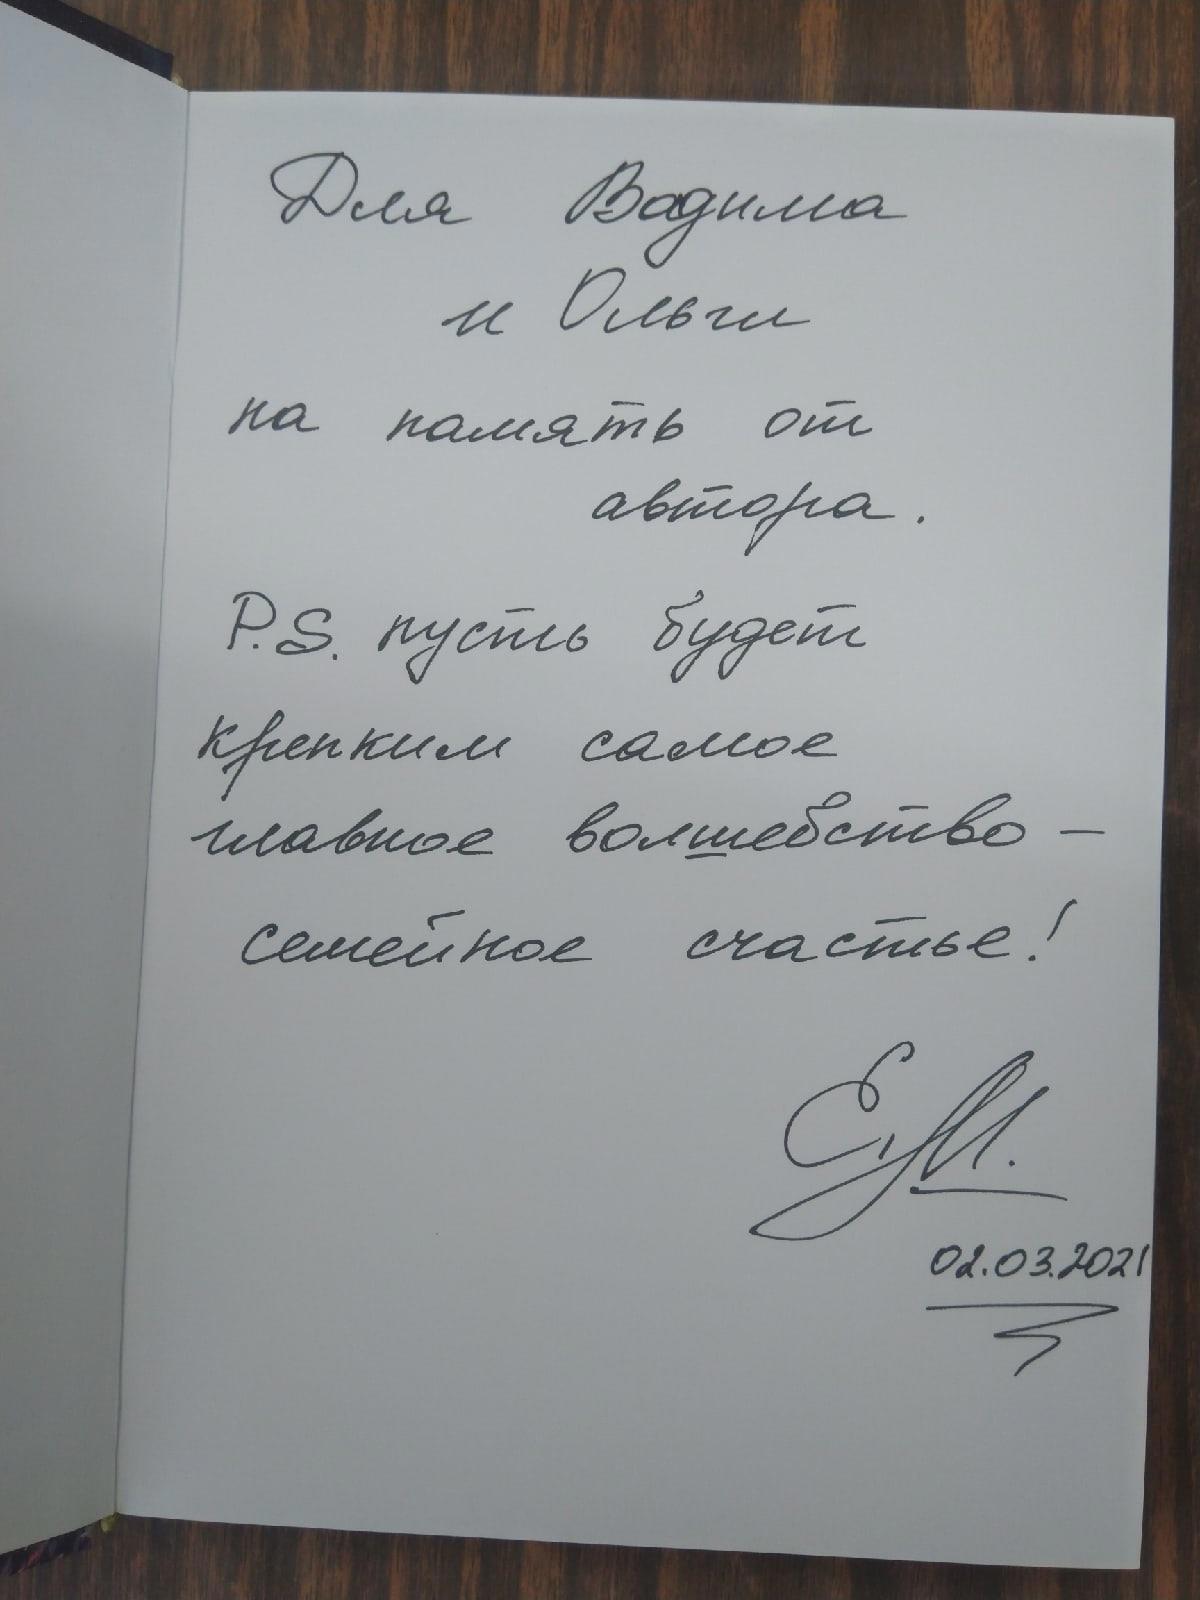 Для Вадима
и Ольги
на память от
автора.
P.S. пусть будет
крепким самое
главное волшебство -
семейное счастье!
02.03.2021